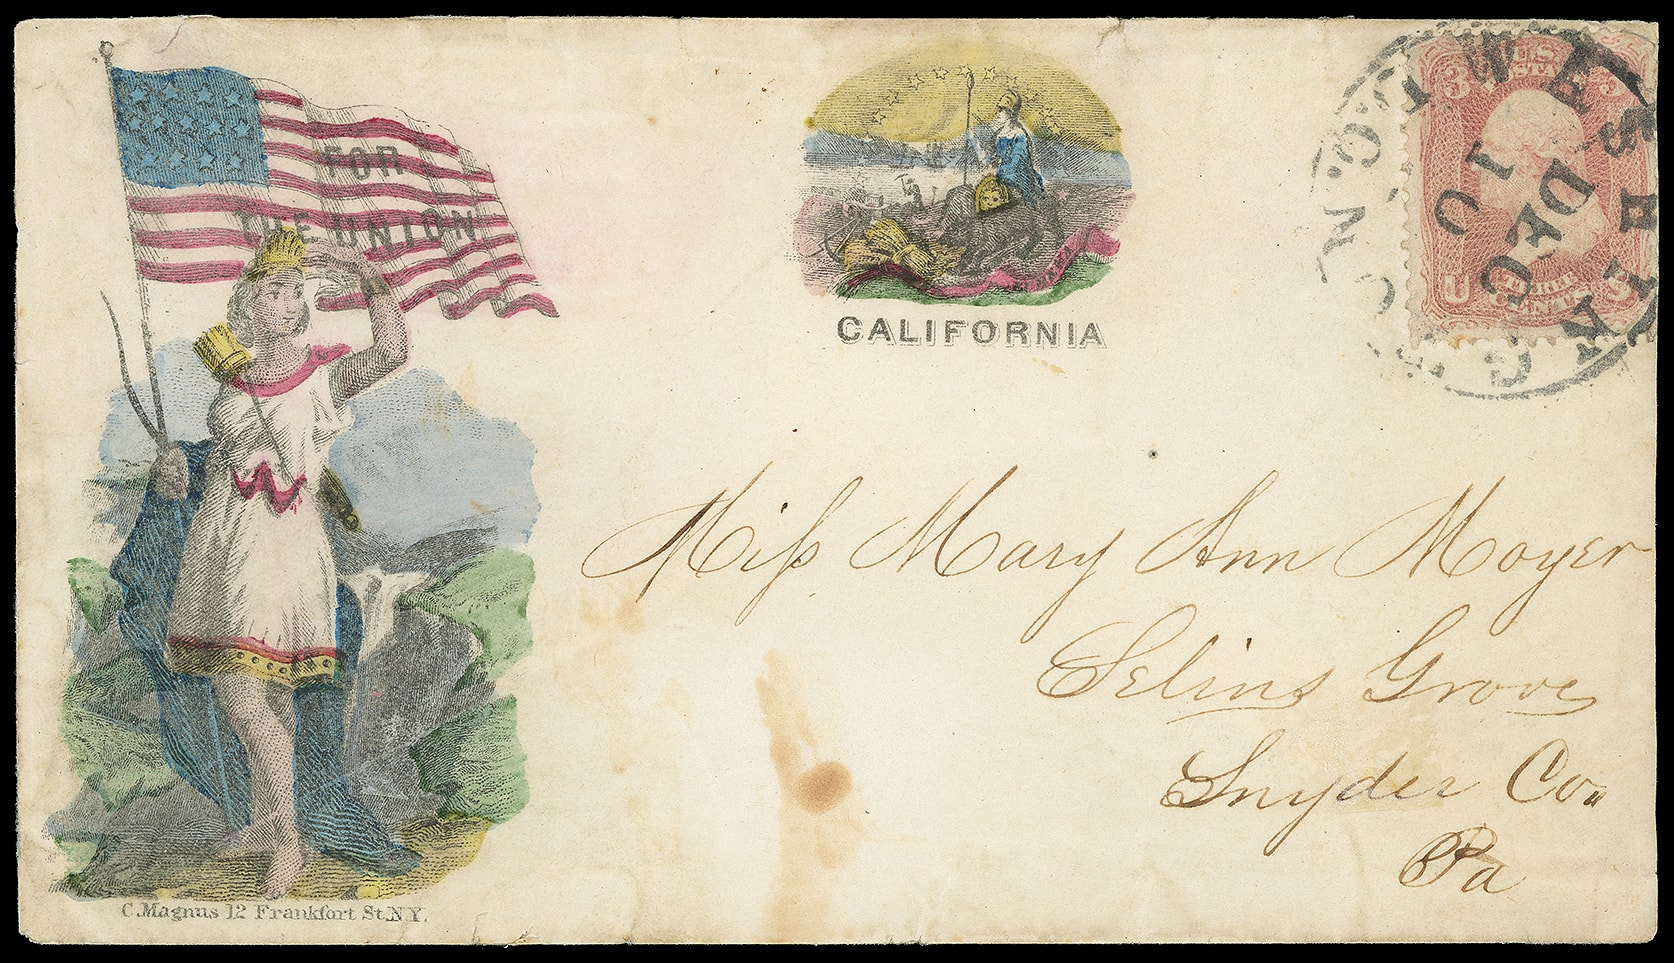 FOR
THE UNION
CALIFORNIA
3 U.S. 3
DEC
10
U S
THREE
CENTS
Miſs Mary Ann Moyer
Selins Grove
Snyder Co.
Pa
C. Magnus 12 Frankfort St. N.Y.